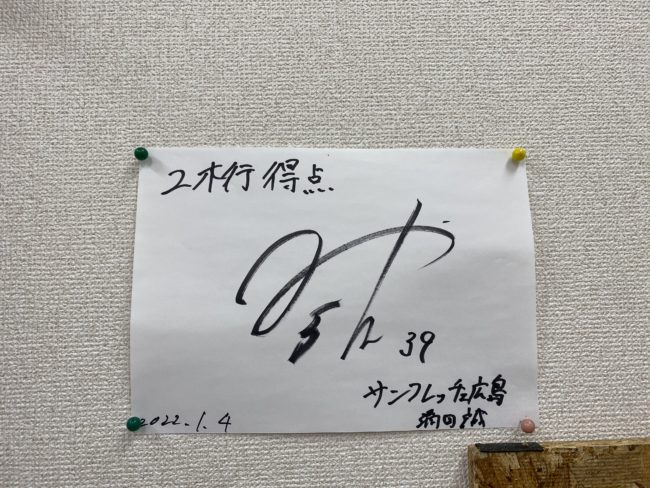 2桁 得点
39
サンフレッチェ広島
満田 誠
2022.1.4